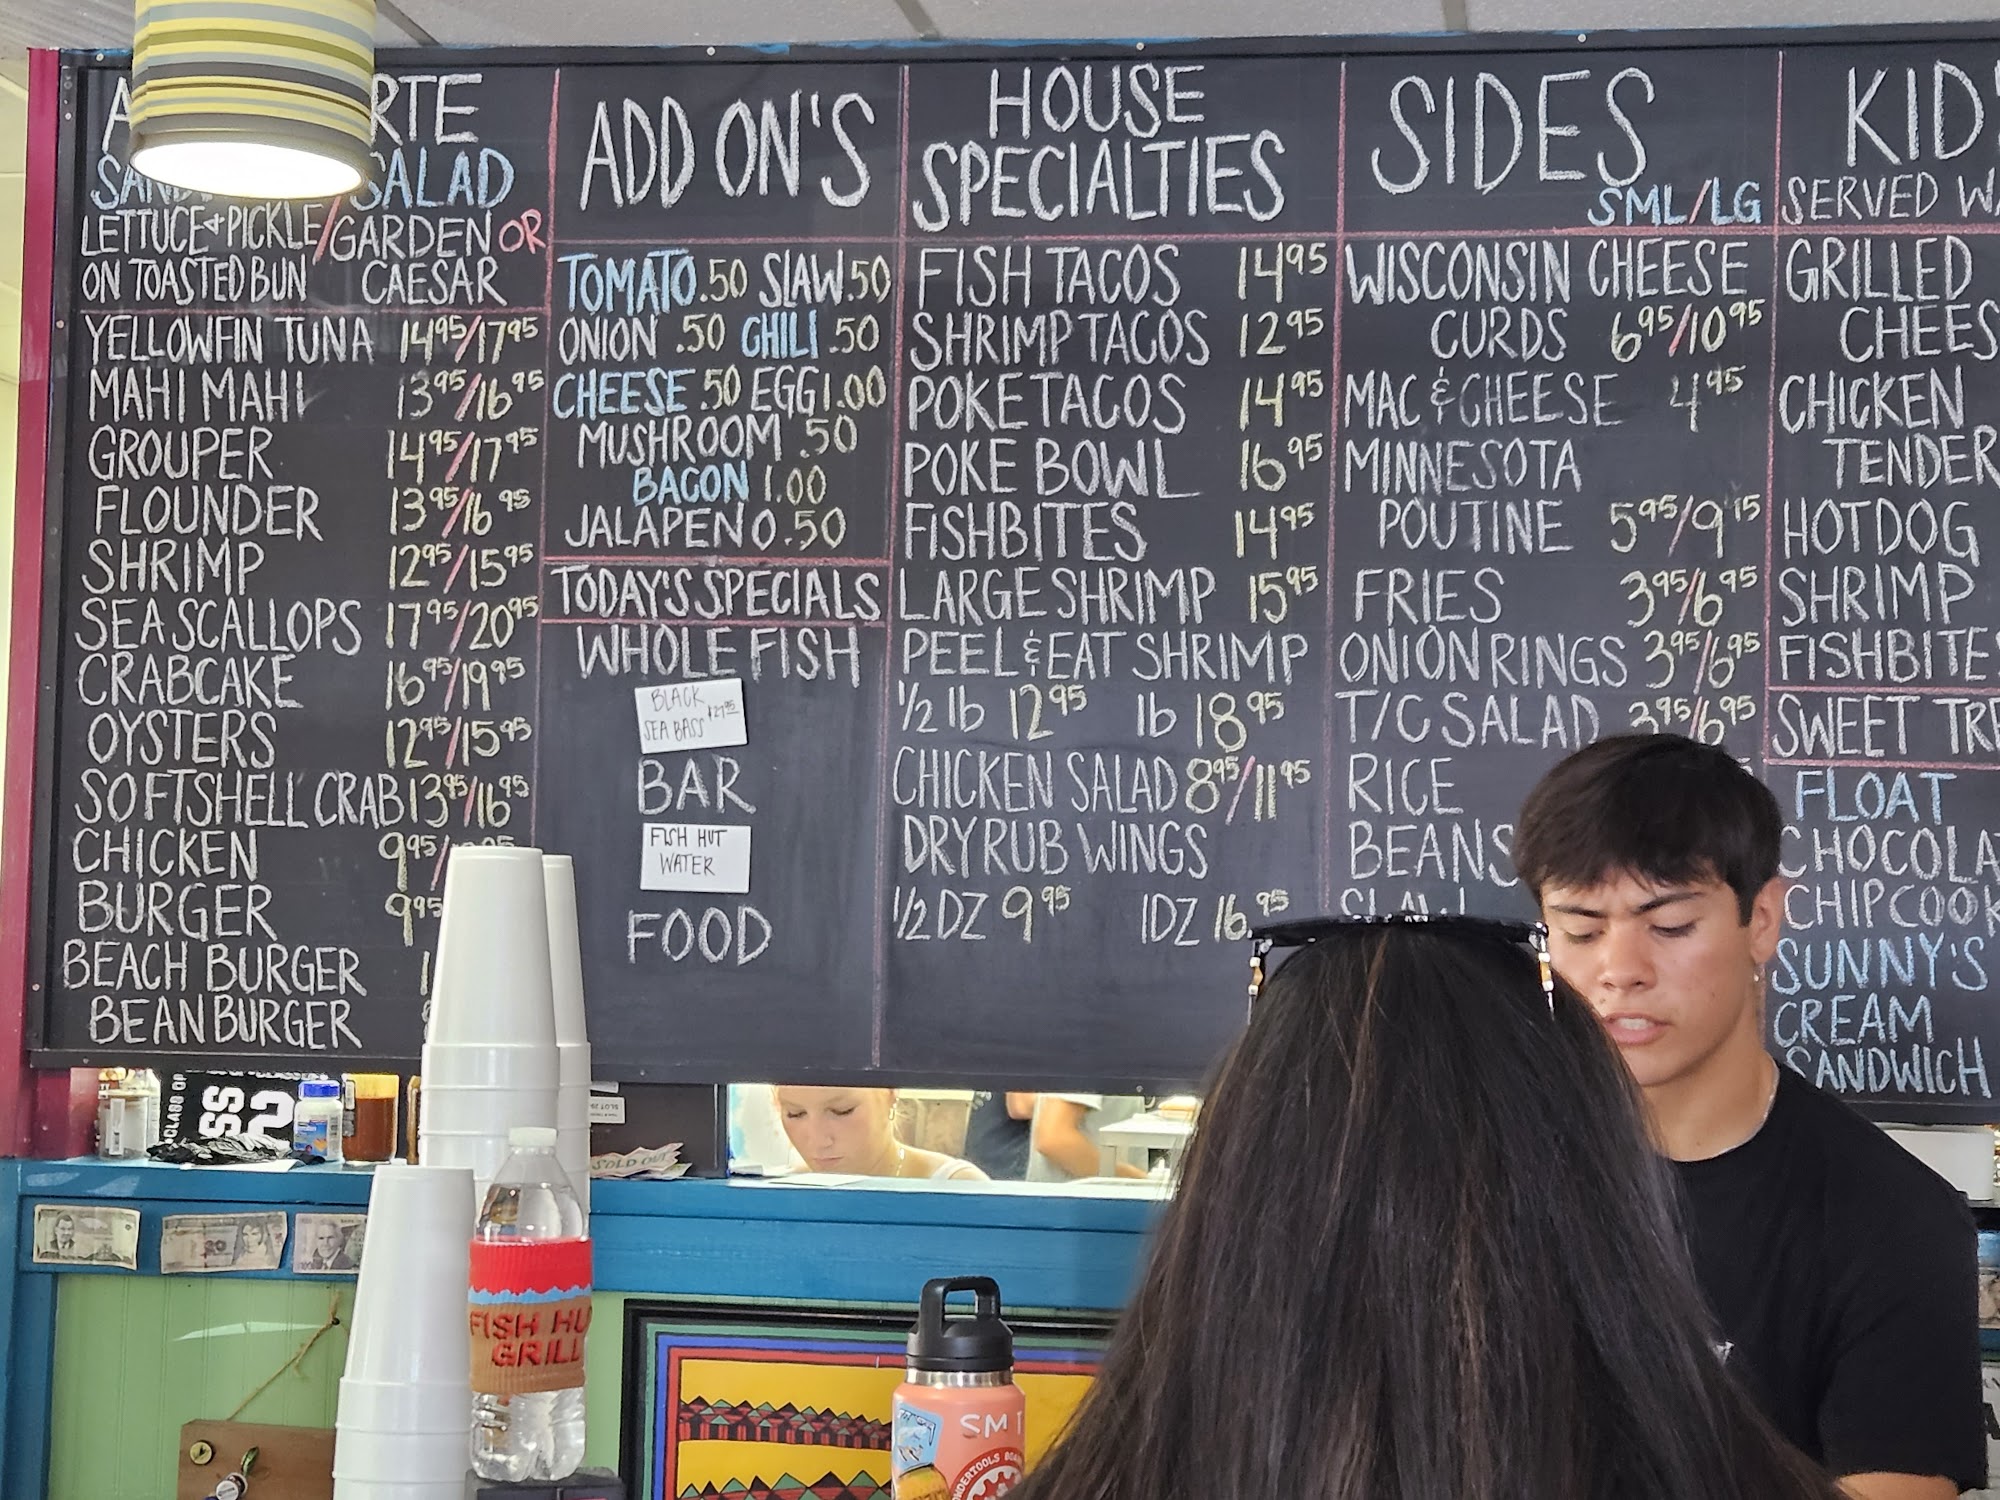 RTE
SALAD
LETTUCE & PICKLE / GARDEN OR
ON TOASTED BUN CAESAR
YELLOWFIN TUNA 14.95/17.95
MAHI MAHI 13.95/16.95
GROUPER 14.95/17.95
FLOUNDER 13.95/16.95
SHRIMP 12.95/15.95
SEA SCALLOPS 17.95/20.95
CRABCAKE 16.95/19.95
OYSTERS 12.95/15.95
SOFTSHELL CRAB 13.95/16.95
CHICKEN 9.95/
BURGER 9.95
BEACH BURGER
BEAN BURGER
ADD ON'S
TOMATO .50 SLAW .50
ONION .50 CHILI .50
CHEESE .50 EGG 1.00
MUSHROOM .50
BACON 1.00
JALAPENO .50
TODAY'S SPECIALS
WHOLE FISH
BLACK
SEA BASS $27.95
BAR
FISH HUT
WATER
FOOD
HOUSE
SPECIALTIES
FISH TACOS 14.95
SHRIMP TACOS 12.95
POKE TACOS 14.95
POKE BOWL 16.95
FISHBITES 14.95
LARGE SHRIMP 15.95
PEEL & EAT SHRIMP
1/2 lb 12.95 lb 18.95
CHICKEN SALAD 8.95/11.95
DRY RUB WINGS
1/2 DZ 9.95 1DZ 16.95
SIDES
SML/LG
WISCONSIN CHEESE
CURDS 6.95/10.95
MAC & CHEESE 4.95
MINNESOTA
POUTINE 5.95/9.15
FRIES 3.95/6.95
ONION RINGS 3.95/6.95
T/C SALAD 3.95/6.95
RICE
BEANS
SLAW
KID'
SERVED W
GRILLED
CHEES
CHICKEN
TENDER
HOTDOG
SHRIMP
FISHBITE
SWEET TRE
FLOAT
CHOCOLA
CHIP COOK
SUNNY'S
CREAM
SANDWICH
SOLD OUT
FISH HU
GRILL
SM